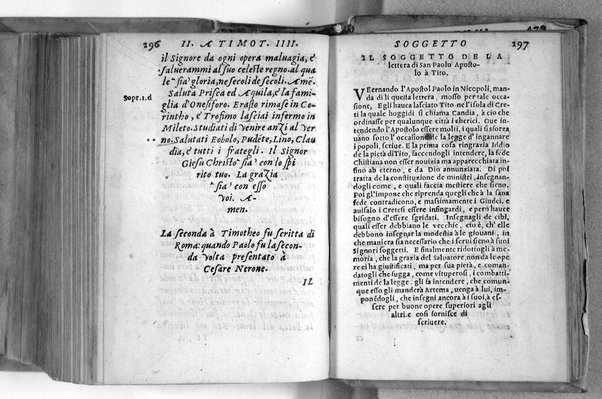 296 II. A TIMOT. IIII.
il Signore da ogni opera maluagia, e
saluerammi al suo celeste regno. al qua
le sia gloria, ne secoli de secoli. Amē.
Sopr.1.d Saluta Prisca ed Aquila, e la fami-
glia d'Onesiforo. Erasto rimase in Co-
rintho, e Trofimo lasciai infermo in
Mileto. Studiati di venire anzi al ver
no. Salutati Eobolo, Pudēte, Lino, Clau
dia, e tutti i frategli. Il Signor
Giesu Christo sia con lo spi
rito tuo. La grazia
sia con esso
voi. A-
men.
La seconda à Timotheo fu scritta di
Roma: quando Paolo fu la secon-
da volta presentato à
Cesare Nerone.
IL
SOGGETTO 297
IL SOGGETTO DE LA
lettera di San Paolo Aposto-
lo à Tito.
VErnando l'Apostol Paolo in Nicopoli, man-
da di lì questa lettera, mosso per tale occa-
sione, Egli hauea lasciato Tito ne l'isola di Cre-
ti la quale hoggidì si chiama Candia, à cio che
ordinasse per qualunque città i cherici. Oue in-
tendendo l'Apostolo essere molti, i quali si sforza
uano sotto l'occasione de la legge d'ingannare
i popoli, scriue. E la prima cosa ringrazia Iddio
de la pietà di Tito, faccendogli intendere, la fede
Chistiana non esser nouizia ma apparecchiata infi-
no ab eterno, e da Dio annunziata. Di poi
tratta de la constituzione de ministri, insegnan-
dogli come, e quali faccia mestiere che sieno.
Poi gl'impone che riprenda quegli chè la sana
fede contradicono, e massimamente i Giudei, e
auisalo i Cretesi essere infingardi, e però hauer
bisogno d'essere sgridati. Insegnagli de cibi,
quali esser debbiano le vecchie, e ciò è, ch'elle
debbono insegnar la modestia à le giouani, in
che maniera sia necessario che i serui sieno à suoi
Signori soggetti. E finalmente ridottogli à me-
moria, che la grazia del Saluatore, non da le ope
re ci ha giustificati, ma per sua pietà, e comanda-
togli che sugga, come vituperosi, i combatti-
menti de la legge. gli fa intendere, che comun-
que esso gli manderà Artema, uenga à lui, im-
ponēdogli, che insegni ancora à i suoi, à es-
sere per buone opere superiori agli
altri. e così fornisce di
scriuere.